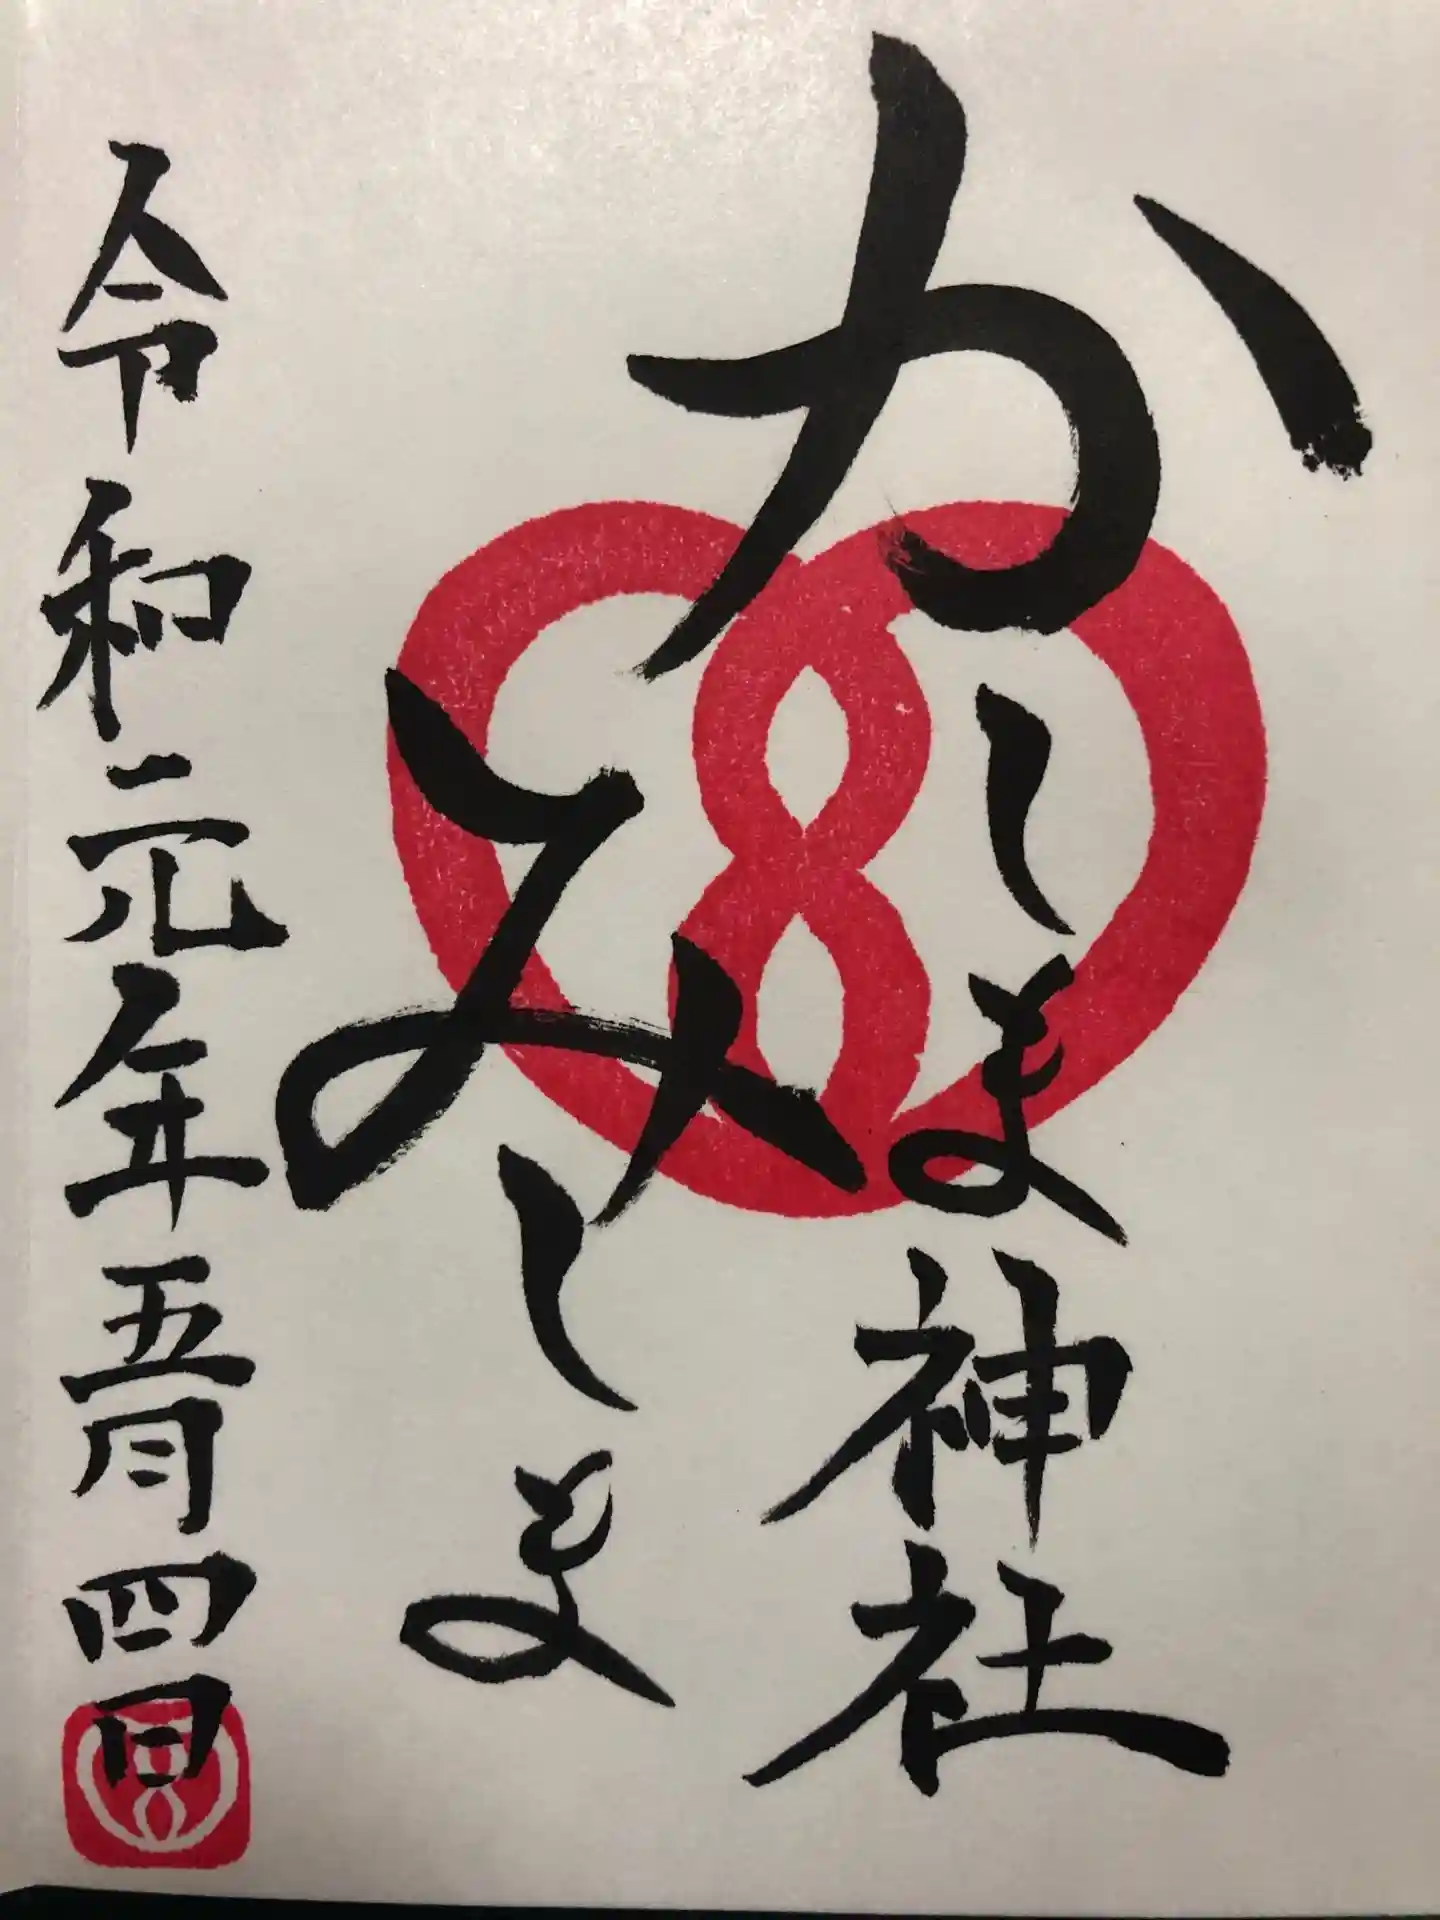 かしま神社
みしま
令和元年五月四日